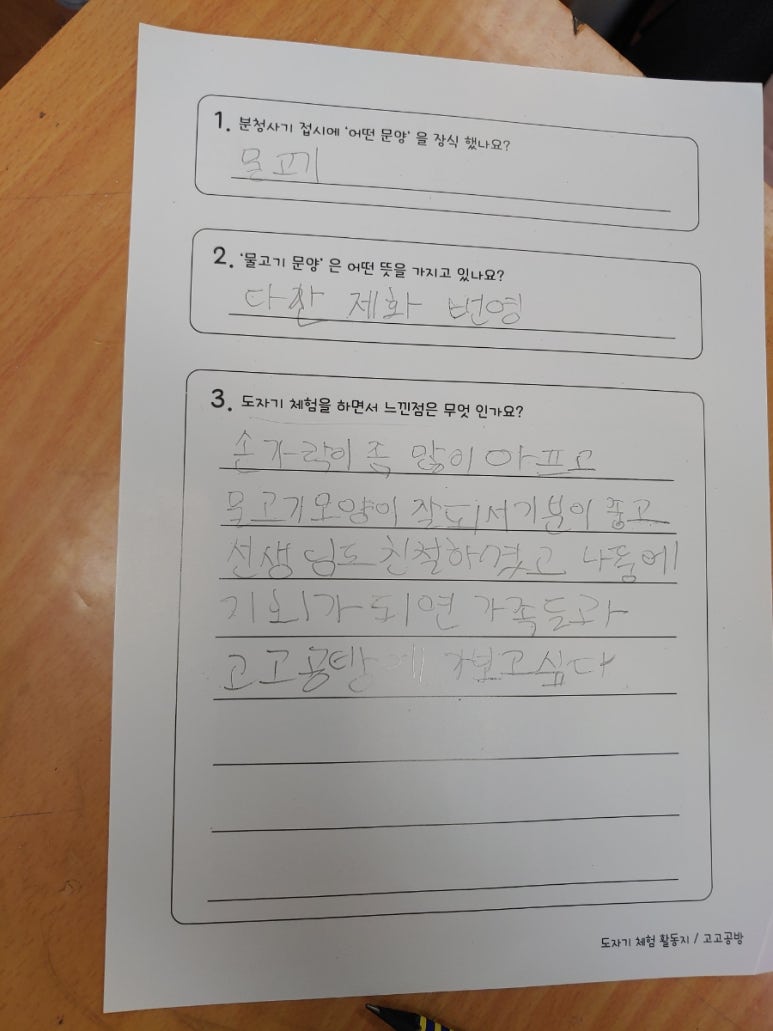 1. 분청사기 접시에 '어떤 문양' 을 장식 했나요?
물고기
2. '물고기 문양' 은 어떤 뜻을 가지고 있나요?
다산 제화 번영
3. 도자기 체험을 하면서 느낀점은 무엇 인가요?
손가락이 좀 많이 아프고
물고기모양이 잘되서기분이 좋고
선생님도 친철하였고 나중에
기회가 되면 가족들과
고고공방에 가보고싶다
도자기 체험 활동지 / 고고공방